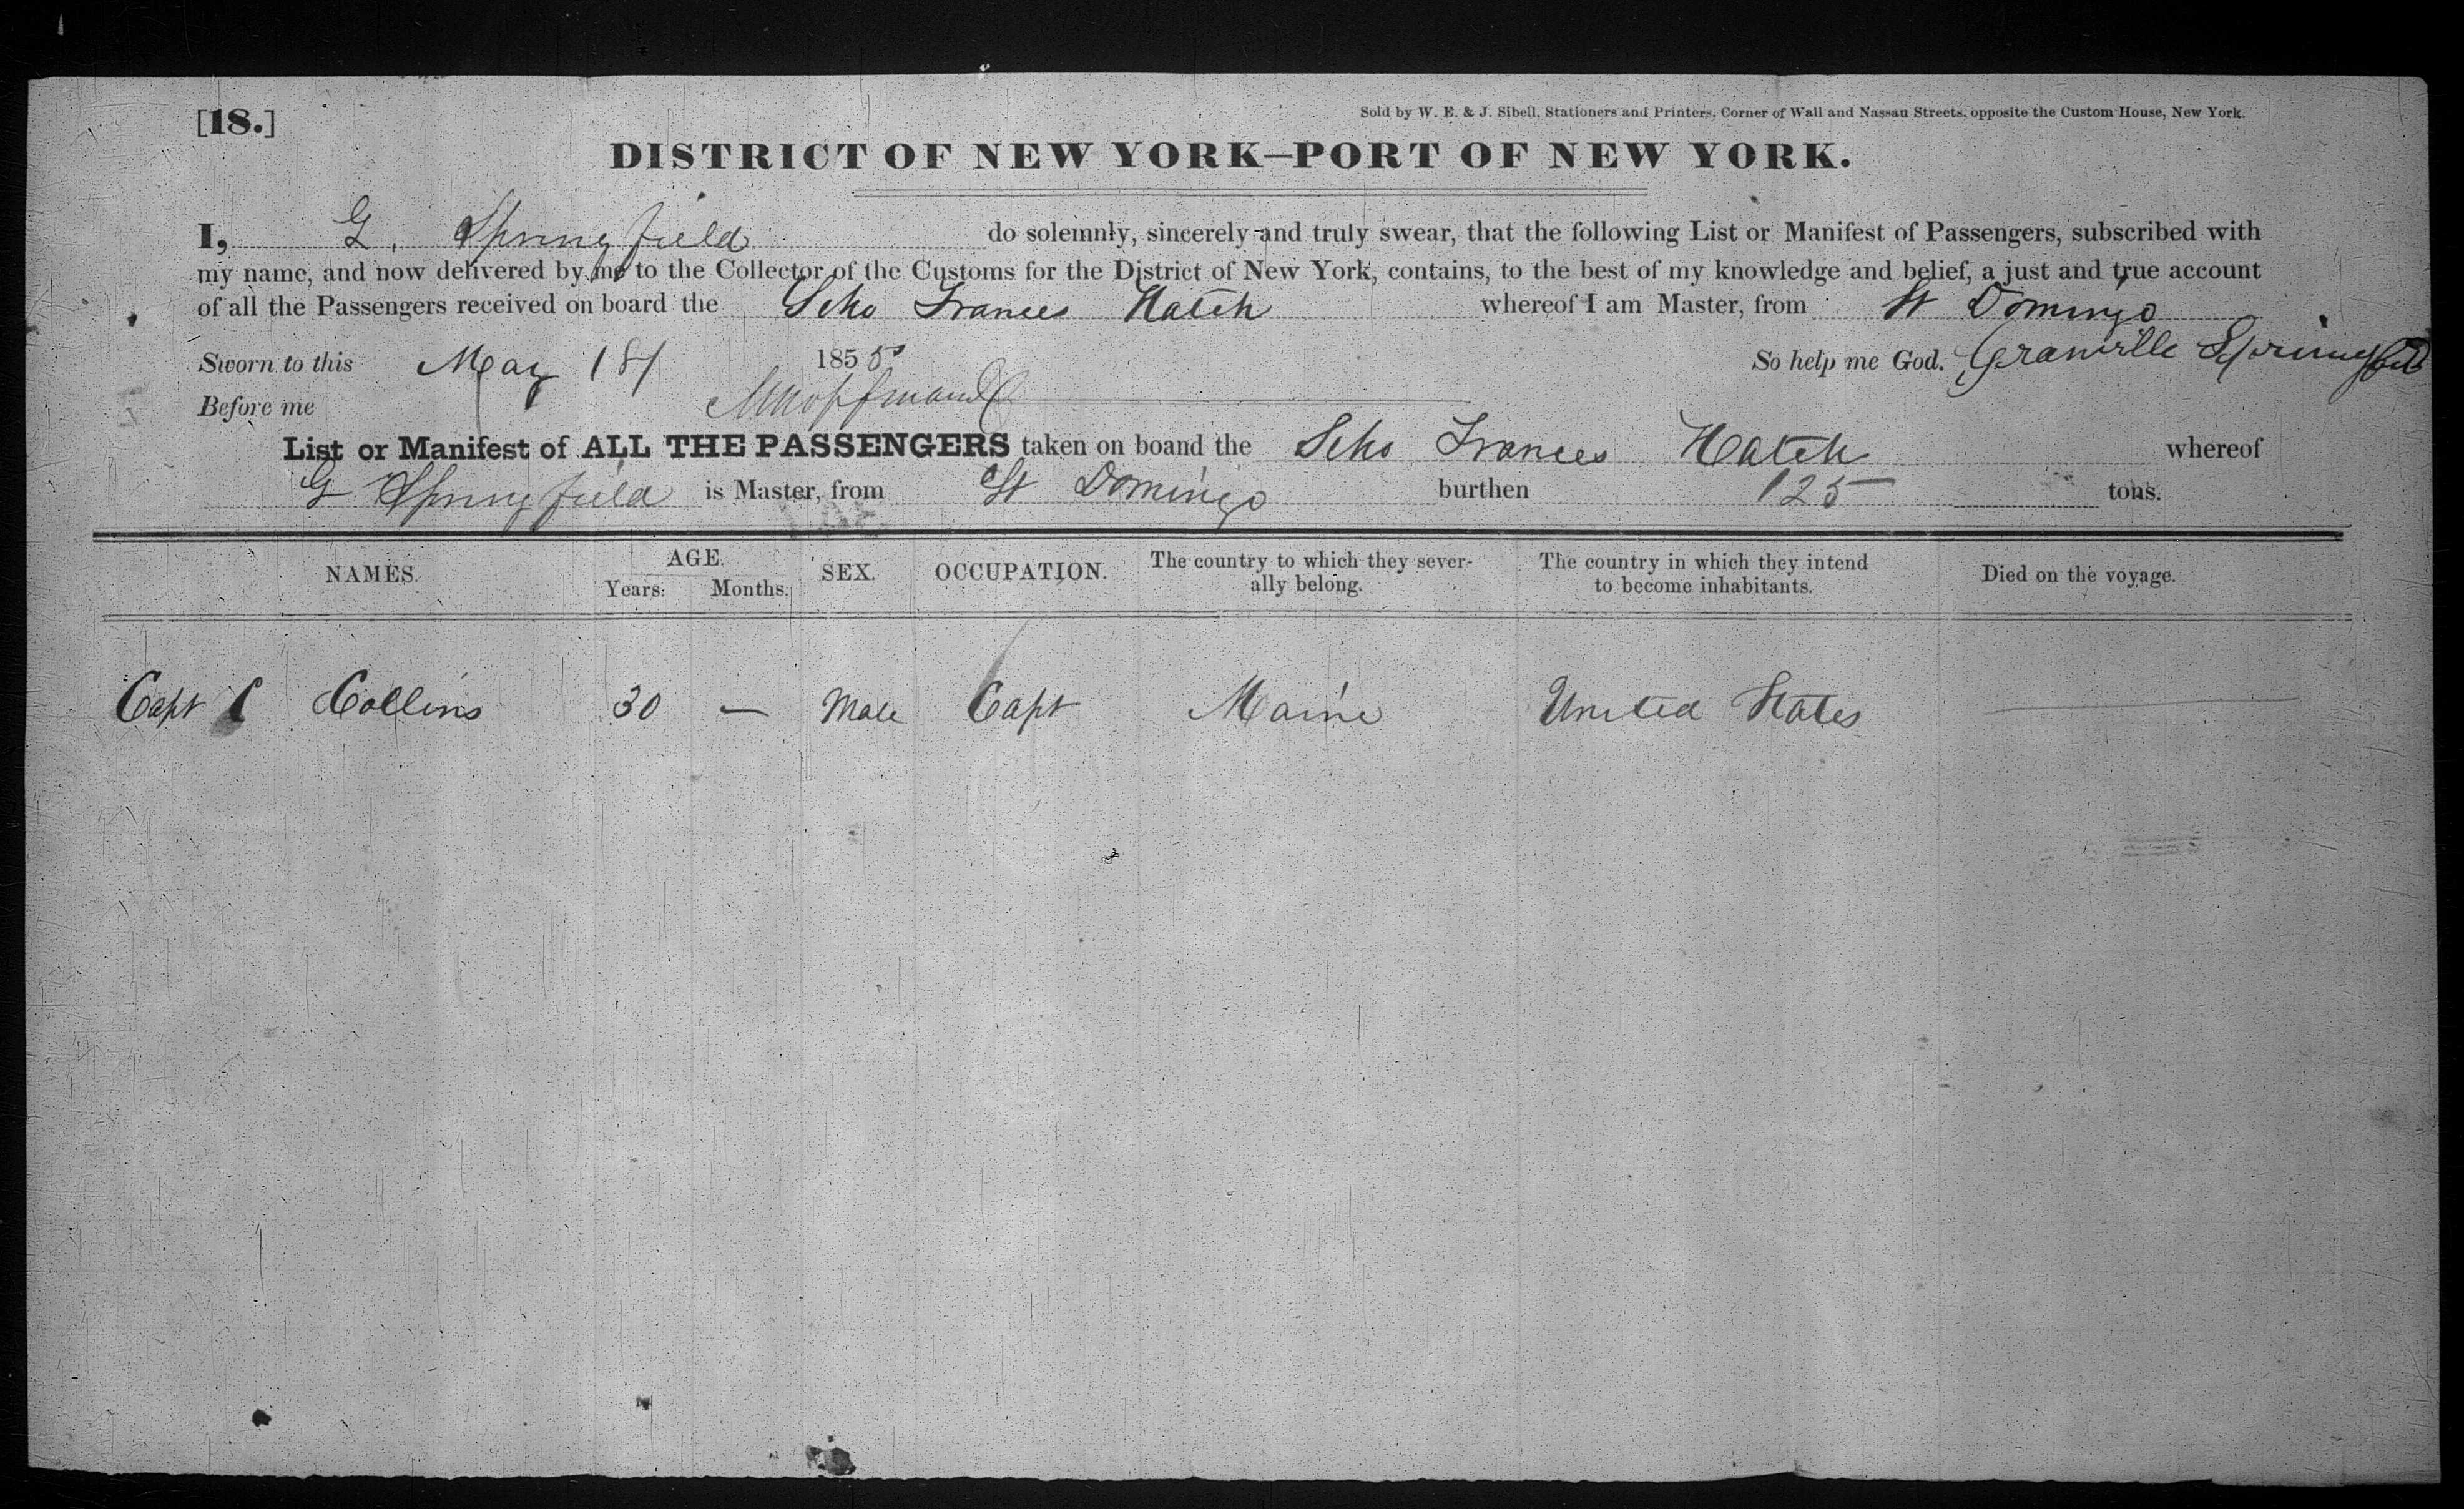 [18.]
Sold by W. E. & J. Sibell, Stationers and Printers, Corner of Wall and Nassau Streets, opposite the Custom House, New York.
DISTRICT OF NEW YORK—PORT OF NEW YORK.
I, G. Springfield do solemnly, sincerely and truly swear, that the following List or Manifest of Passengers, subscribed with
my name, and now delivered by me to the Collector of the Customs for the District of New York, contains, to the best of my knowledge and belief, a just and true account
of all the Passengers received on board the Schr Frances Hatch whereof I am Master, from St Domingo
Sworn to this May 18/ 1855 So help me God. Granville Springfield
Before me
List or Manifest of ALL THE PASSENGERS taken on boand the Schr Frances Hatch whereof
G Springfield is Master, from St Domingo burthen 125 tons.
NAMES. AGE. Years: Months. SEX. OCCUPATION. The country to which they sever-ally belong. The country in which they intend to become inhabitants. Died on the voyage.
Capt Collins 30 — Male Capt Maine United States